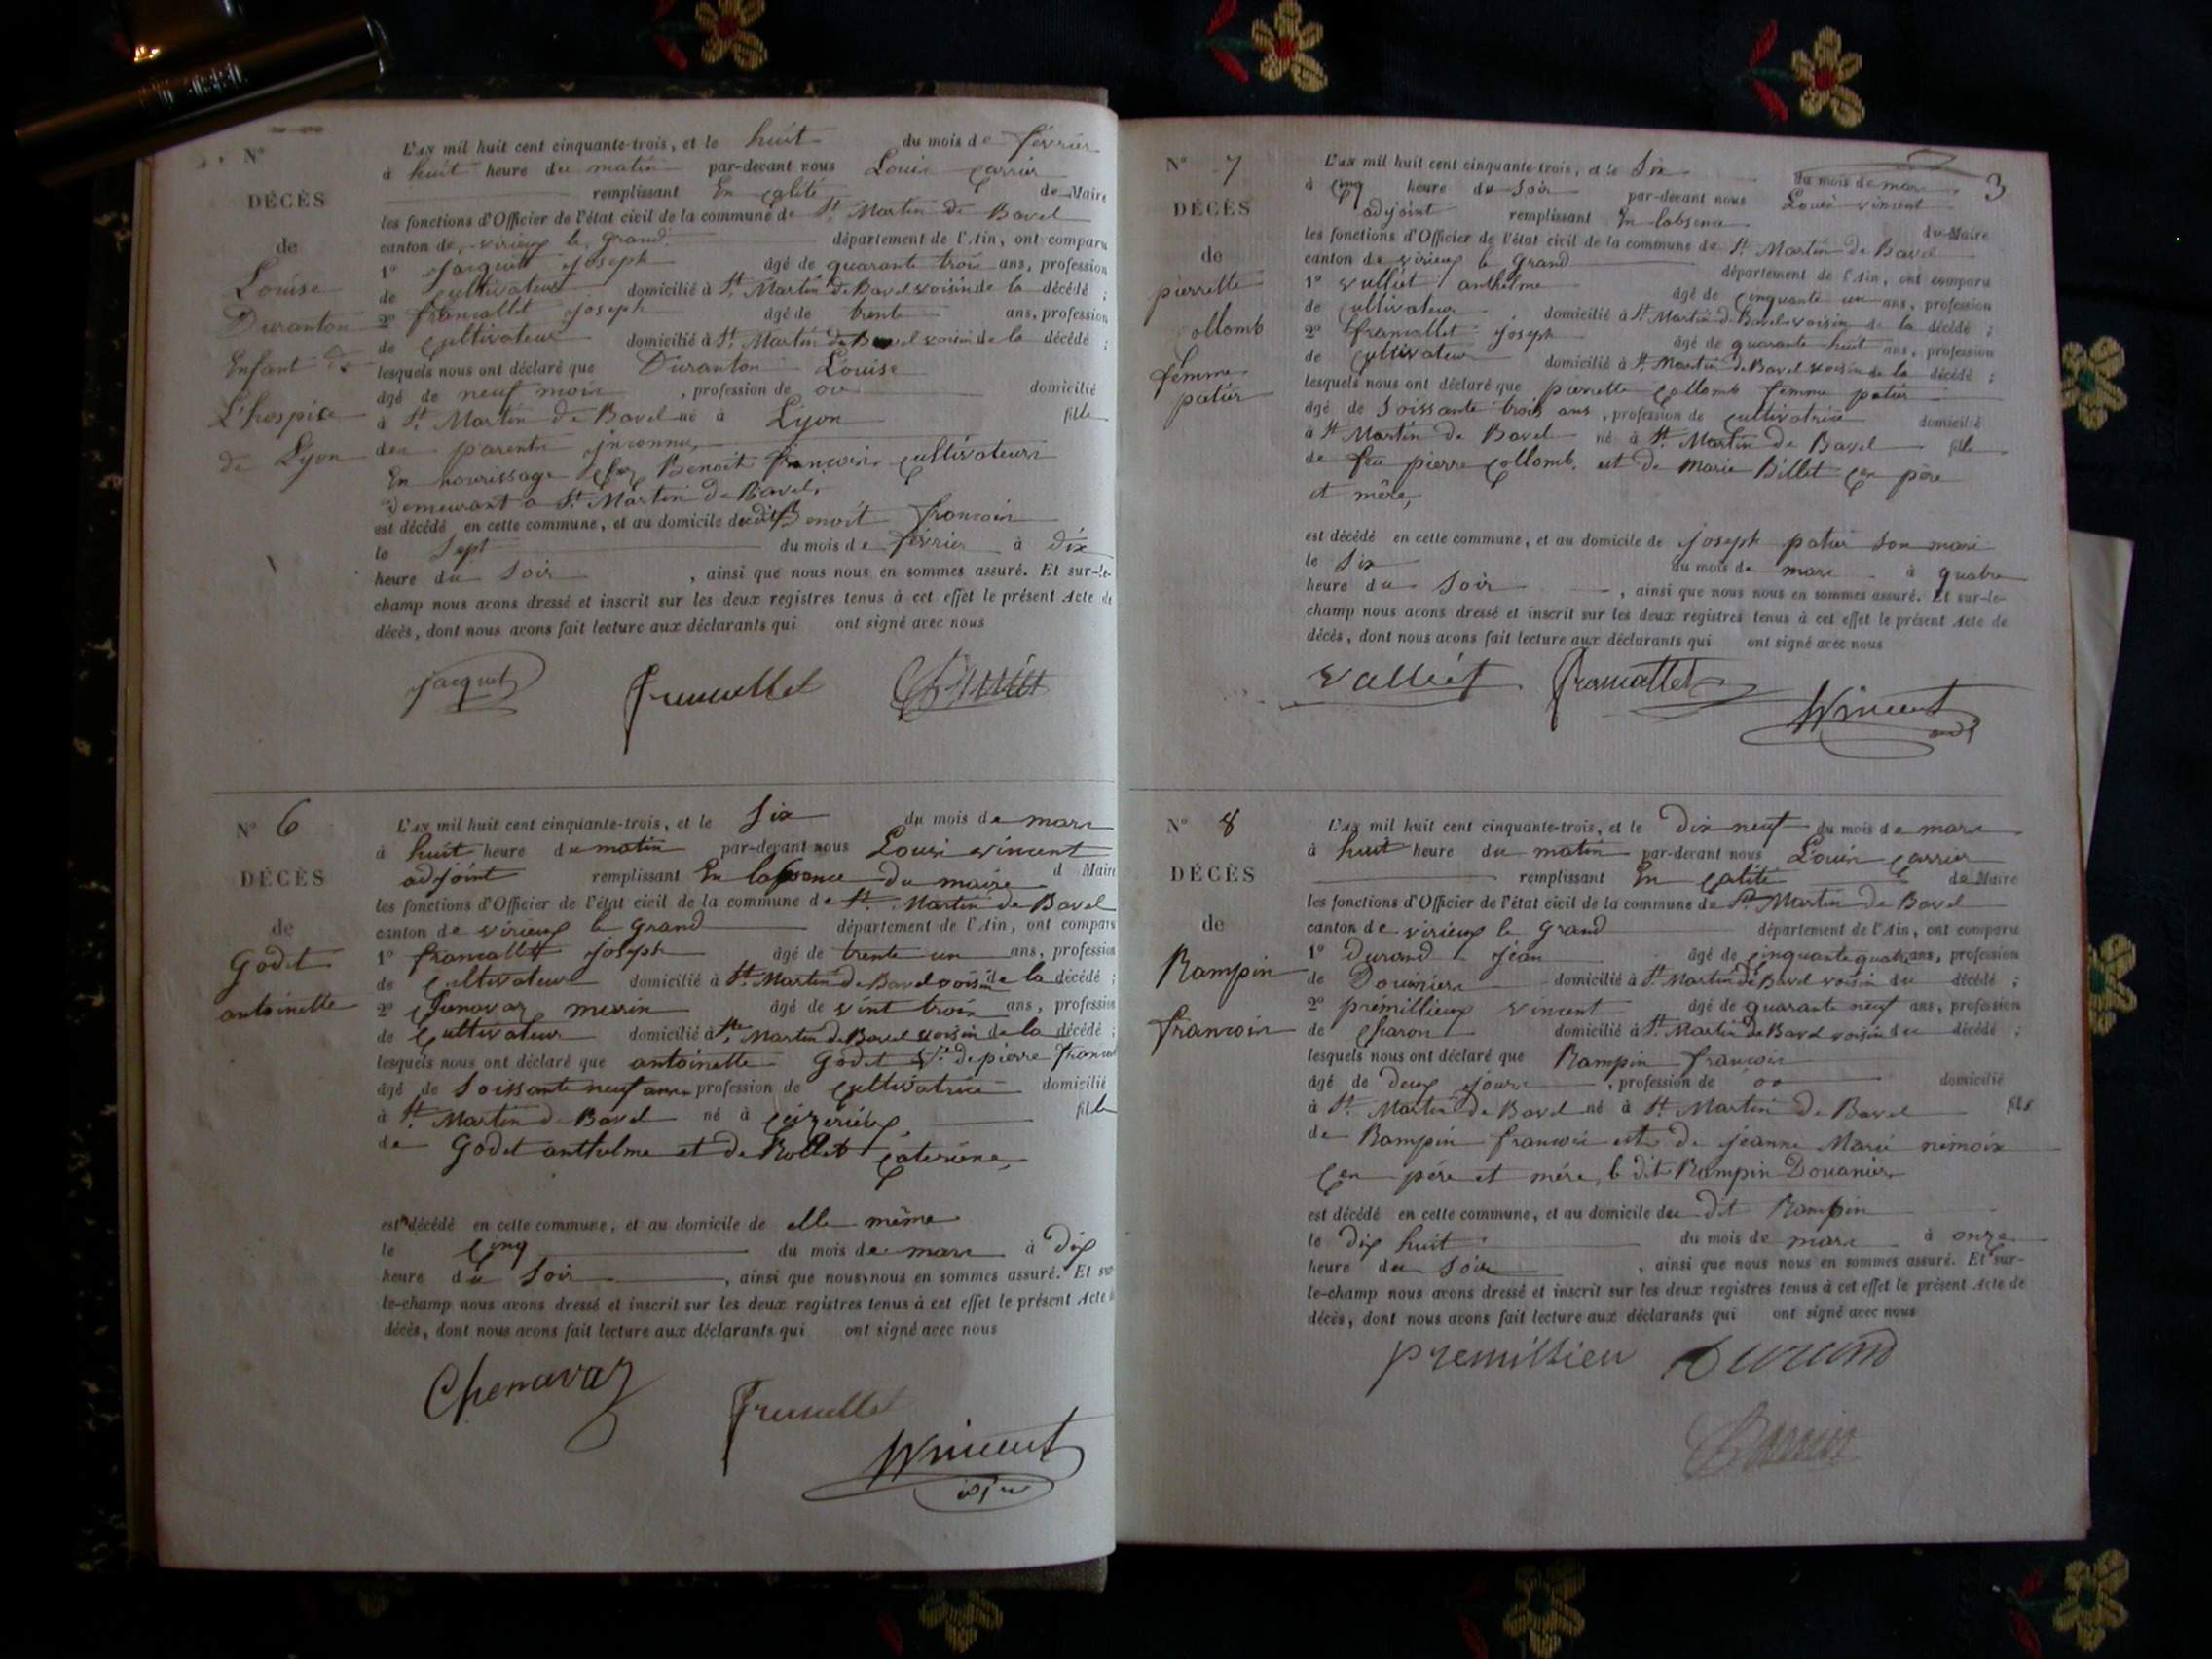 N°
DÉCÈS
de
Louise
Duranton
Enfant de
L'hospice
de Lyon
L'AN mil huit cent cinquante-trois, et le huit du mois de février
à huit heure du matin par-devant nous Louis Carrier
remplissant En calité de Maire
les fonctions d'Officier de l'état civil de la commune de St Martin de Bavel
canton de virieux le grand département de l'Ain, ont comparu
1° Jacquet Joseph âgé de quarante trois ans, profession
de Cultivateur domicilié à St Martin de Bavel voisin de la décédé ;
2° francallet Joseph âgé de trente ans, profession
de Cultivateur domicilié à St Martin de Bavel voisin de la décédé ;
lesquels nous ont déclaré que Duranton Louise
âgé de neuf mois , profession de domicilié
à St Martin de Bavel né à Lyon fille
des parents inconnus
En nourissage chez Benoit françois, cultivateurs
Demeurant a St Martin de Bavel,
est décédé en cette commune, et au domicile dudit Benoit francois
le Sept du mois de février à dix
heure du Soir , ainsi que nous nous en sommes assuré. Et sur-le-
champ nous avons dressé et inscrit sur les deux registres tenus à cet effet le présent Acte de
décès, dont nous avons fait lecture aux déclarants qui ont signé avec nous
Jacquet francallet Carrier
N° 6
DÉCÈS
de
Godet
antoinette
L'AN mil huit cent cinquante-trois, et le Six du mois de mars
à huit heure du matin par-devant nous Louis vincent
adjoint remplissant En labsence du maire d Maire
les fonctions d'Officier de l'état civil de la commune de St Martin de Bavel
canton de virieux le grand département de l'Ain, ont comparu
1° francallet Joseph âgé de trente un ans, profession
de Cultivateur domicilié à St Martin de Bavel voisin de la décédé ;
2° âgé de vint trois ans, profession
de Cultivateur domicilié à St Martin de Bavel voisin de la décédé ;
lesquels nous ont déclaré que antoinette Godet Ve de pierre
âgé de Soissante neuf ans profession de Cultivatrice domicilié
à St Martin de Bavel né à Ceizérieux fille
de Godet anthelme et de Rollet Caterine,
est décédé en cette commune, et au domicile de elle même
le Cinq du mois de mars à dix
heure du Soir , ainsi que nous nous en sommes assuré. Et sur-
le-champ nous avons dressé et inscrit sur les deux registres tenus à cet effet le présent Acte de
décès, dont nous avons fait lecture aux déclarants qui ont signé avec nous
Chenavaz francallet
Vincent
adj
3
N° 7
DÉCÈS
de
pierrette
Collomb
femme
patier
L'AN mil huit cent cinquante-trois, et le Six du mois de mars
à Cinq heure du Soir par-devant nous Louis vincent
adjoint remplissant En labsence du Maire
les fonctions d'Officier de l'état civil de la commune de St Martin de Bavel
canton de virieux le grand département de l'Ain, ont comparu
1° vulliet anthelme âgé de Cinquante un ans, profession
de Cultivateur domicilié à St Martin de Bavel voisin de la décédé ;
2° francallet Joseph âgé de quarante huit ans, profession
de Cultivateur domicilié à St Martin de Bavel voisin de la décédé ;
lesquels nous ont déclaré que pierrette Collomb femme patier
âgé de Soissante trois ans , profession de Cultivatrice domicilié
à St Martin de Bavel né à St Martin de Bavel fille
de feu pierre Collomb. et de Marie Billet Ces père
et mère,
est décédé en cette commune, et au domicile de Joseph patier Son mari
le Six du mois de mars à quatre
heure du Soir , ainsi que nous nous en sommes assuré. Et sur-le-
champ nous avons dressé et inscrit sur les deux registres tenus à cet effet le présent Acte de
décès, dont nous avons fait lecture aux déclarants qui ont signé avec nous
Vulliet francallet
Vincent
adj
N° 8
DÉCÈS
de
Rampin
francois
L'AN mil huit cent cinquante-trois, et le Dix neuf du mois de mars
à huit heure du matin par-devant nous Louis Carrier
remplissant En Calité de Maire
les fonctions d'Officier de l'état civil de la commune de St Martin de Bavel
canton de virieux le grand département de l'Ain, ont comparu
1° Durand Jean âgé de Cinquante quatre ans, profession
de Douinier domicilié à St Martin de Bavel voisin du décédé ;
2° prémillieux vincent âgé de quarante neuf ans, profession
de Charon domicilié à St Martin de Bavel voisin du décédé ;
lesquels nous ont déclaré que Rampin françois
âgé de deux jours , profession de domicilié
à St Martin de Bavel né à St Martin de Bavel fils
de Rampin francois et de jeanne Marie
Ces père et mère, le dit Rampin Douanier
est décédé en cette commune, et au domicile du dit Rampin
le dix huit du mois de mars à onze
heure du Soir , ainsi que nous nous en sommes assuré. Et sur-
le-champ nous avons dressé et inscrit sur les deux registres tenus à cet effet le présent Acte de
décès, dont nous avons fait lecture aux déclarants qui ont signé avec nous
premillieu Durand
Carrier